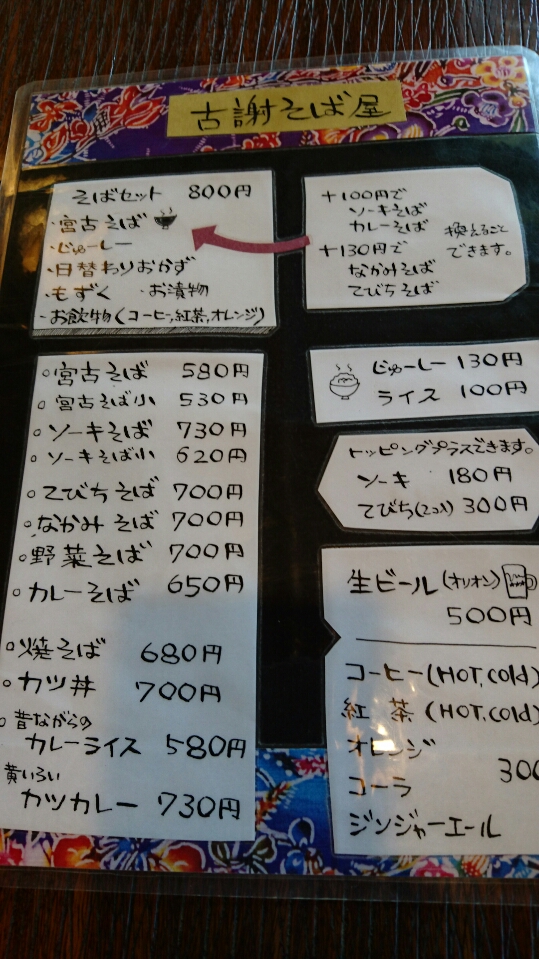 古謝そば屋
そばセット 800円
・宮古そば
・じゅーしー
・日替わりおかず
・もずく ・お漬物
・お飲物(コーヒー,紅茶,オレンジ)
+100円で
ソーキそば
カレーそば
+130円で
なかみそば
てびちそば
換えること
できます。
○宮古そば 580円
○宮古そば小 530円
○ソーキそば 730円
○ソーキそば小 620円
○てびちそば 700円
○なかみそば 700円
○野菜そば 700円
○カレーそば 650円
○焼そば 680円
○カツ丼 700円
○昔ながらの
カレーライス 580円
黄いろい
カツカレー 730円
じゅーしー 130円
ライス 100円
トッピングプラスできます。
ソーキ 180円
てびち(2コ入) 300円
生ビール(オリオン)
500円
コーヒー(HOT,cold)
紅茶(HOT,cold)
オレンジ
300
コーラ
ジンジャーエール